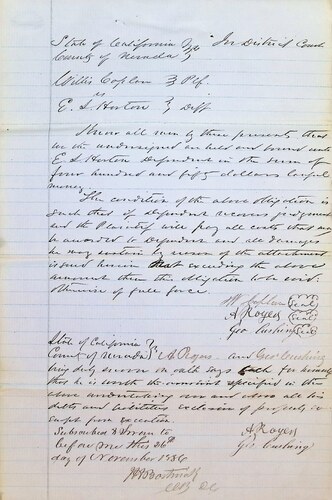 State of California } In District Court
County of Nevada }
Willis Coplon } Plf.
vs
E. S. Horton } Deft
Know all men by these presents that
we the undersigned are held and bound unto
E S Horton Defendant in the sum of
four hundred and fifty dollars lawful
money.
The condition of the above obligation is
such that if Defendant recovers judgment
and the Plaintiff will pay all costs that may
be awarded to Defendant and all damages
he may sustain by reason of the attachment
issued herein not exceeding the above
amount then this obligation to be void.
Otherwise of full force.
W. Coplon
A Rogers
Geo Cushing
State of California }
County of Nevada } A Rogers and Geo Cushing
being duly sworn on oath says each for himself
that he is worth the amount specified in the
above undertaking over and above all his
debts and liabilities exclusive of property
exempt from execution
Subscribed & Sworn to
before me this 26th
day of November 1856
A Rogers
Geo Cushing